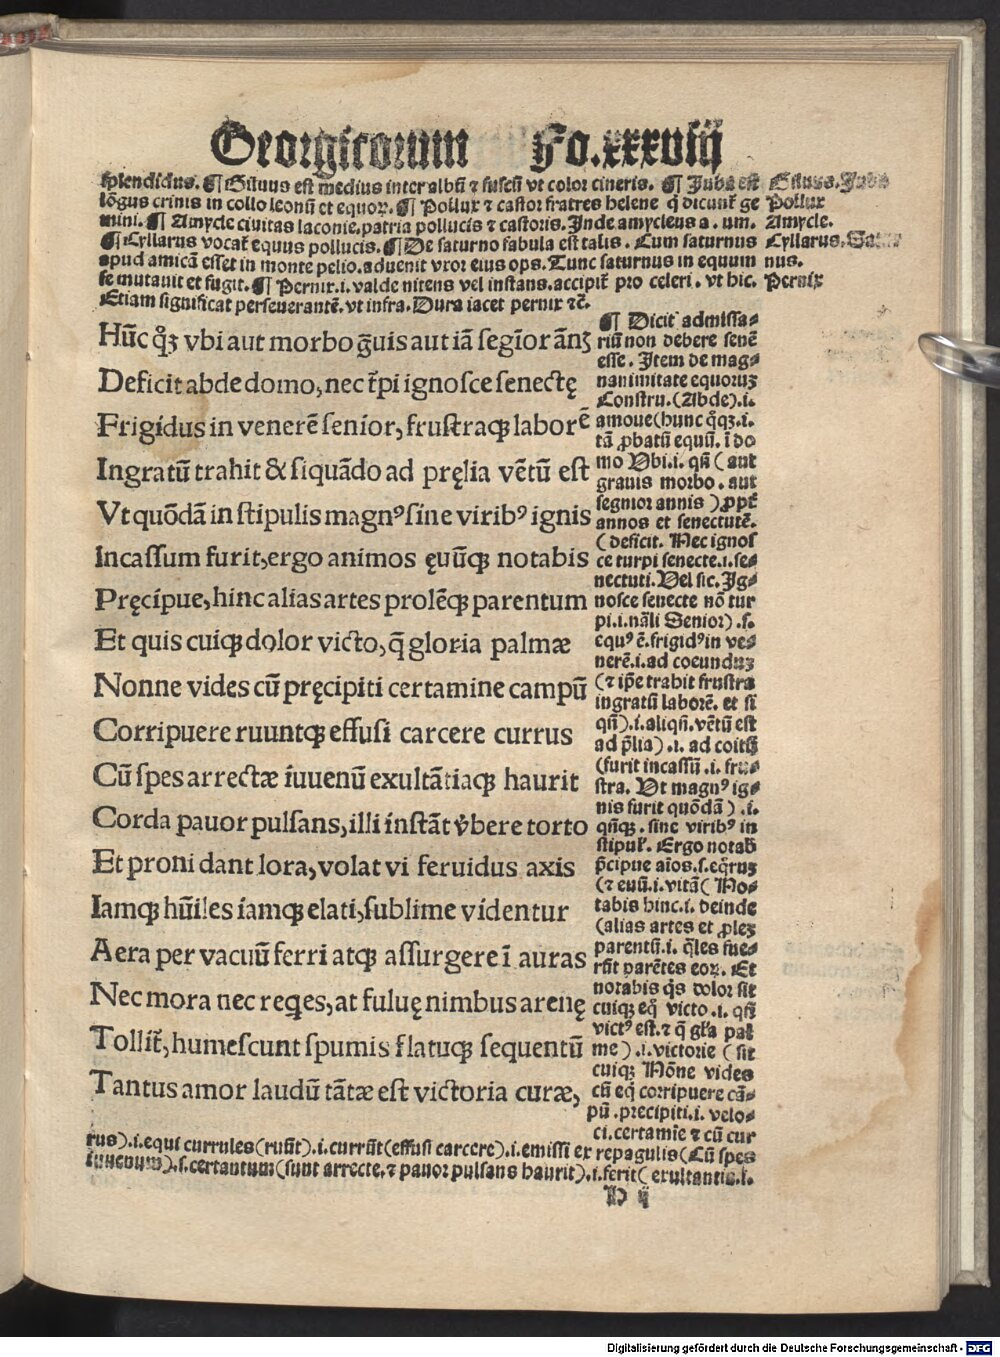 Georgicorum Fo.xxxviij
splendidus. ¶ Giluus est medius inter albũ ⁊ fuscũ vt color cineris. ¶ Juba est Giluus. Juba
lõgus crinis in collo leonũ et equoꝝ. ¶ Pollux ⁊ castor fratres helene q̃ dicunt̃ ge Pollux
mini. ¶ Amycle ciuitas laconie. patria pollucis ⁊ castoris. Inde amycleus a. um. Amycle.
¶ Cyllarus vocat̃ equus pollucis. ¶ De saturno fabula est talis. Cum saturnus Cyllarus. Satur
apud amicã esset in monte pelio. aduenit vxor eius ops. Tunc saturnus in equum nus.
se mutauit et fugit. ¶ Pernix .i. valde nitens vel instans. accipit̃ pro celeri. vt hic. Pernix
Etiam significat perseuerantẽ. vt infra. Dura iacet pernix ⁊c̃.
Hũc q̊ꝫ vbi aut morbo g̃uis aut iã segior ãnꝫ
Deficit abde domo, nec t̃pi ignosce senectę
Frigidus in venerẽ senior, frustraqꝫ laborẽ
Ingratũ trahit & siquãdo ad pręlia vẽtũ est
Vt quõdã in stipulis magnꝰ sine viribꝰ ignis
Incassum furit, ergo animos ęuũqꝫ notabis
Pręcipue, hinc alias artes prolẽqꝫ parentum
Et quis cuiqꝫ dolor victo, q̃ gloria palmæ
Nonne vides cũ pręcipiti certamine campũ
Corripuere ruuntqꝫ effusi carcere currus
Cũ spes arrectæ iuuenũ exultãtiaqꝫ haurit
Corda pauor pulsans, illi instãt v̄bere torto
Et proni dant lora, volat vi feruidus axis
Iamqꝫ hũiles iamqꝫ elati, sublime videntur
Aera per vacuũ ferri atqꝫ assurgere ĩ auras
Nec mora nec reqes, at fuluę nimbus arenę
Tollit̃, humescunt spumis flatuqꝫ sequentũ
Tantus amor laudũ tãtæ est victoria curæ,
¶ Dicit admissa⸗
riũ non debere senẽ
esse. Item de mag⸗
nanimitate equoruꝫ
Constru. (Abde) .i.
amoue (hunc q̊qꝫ .i.
tã ꝓbatũ equũ. ĩ do
mo Vbi .i. qñ (aut
grauis morbo. aut
segnior annis) ꝓpt̃
annos et senectutẽ.
(deficit. Nec ignos
ce turpi senecte .i. se⸗
nectuti. Vel sic. Ig⸗
nosce senecte nõ tur
pi .i. nãli Senior) .s.
equꝰ ẽ. frigidꝰ in ve⸗
nerẽ .i. ad coeunduꝫ
(⁊ ip̃e trahit frustra
ingratũ laborẽ. et si
qñ) .i. aliqñ. vẽtũ est
ad p̃lia) .i. ad coitũ
(furit incassũ .i. fru⸗
stra. Vt magnꝰ ig⸗
nis furit quõdã) .i.
qñqꝫ. sine viribꝰ in
stipul̃. Ergo notab̃
p̃cipue aĩos .s. eq̃ruꝫ
(⁊ euũ .i. vitã (No⸗
tabis hinc .i. deinde
(alias artes et ꝓleꝫ
parentũ .i. q̃les fue⸗
rũt parẽtes eoꝝ. Et
notabis q̃s dolor sit
cuiqꝫ eq̃ victo .i. qñ
victꝰ est. ⁊ q̃ gl̃a pal
me) .i. victorie (sit
cuiqꝫ Nõne vides
cũ eq̃ corripuere cã⸗
pũ. precipiti .i. velo⸗
ci. certamie ⁊ cũ cur
rus) .i. equi currules (ruũt) .i. currũt (effusi carcere) .i. emissi ex repagulis (Cũ spes
iuuenum) .s. certantum (sunt arrecte. ⁊ pauor pulsans haurit) .i. ferit (exultantia .s.
H ij
Digitalisierung gefördert durch die Deutsche Forschungsgemeinschaft - DFG